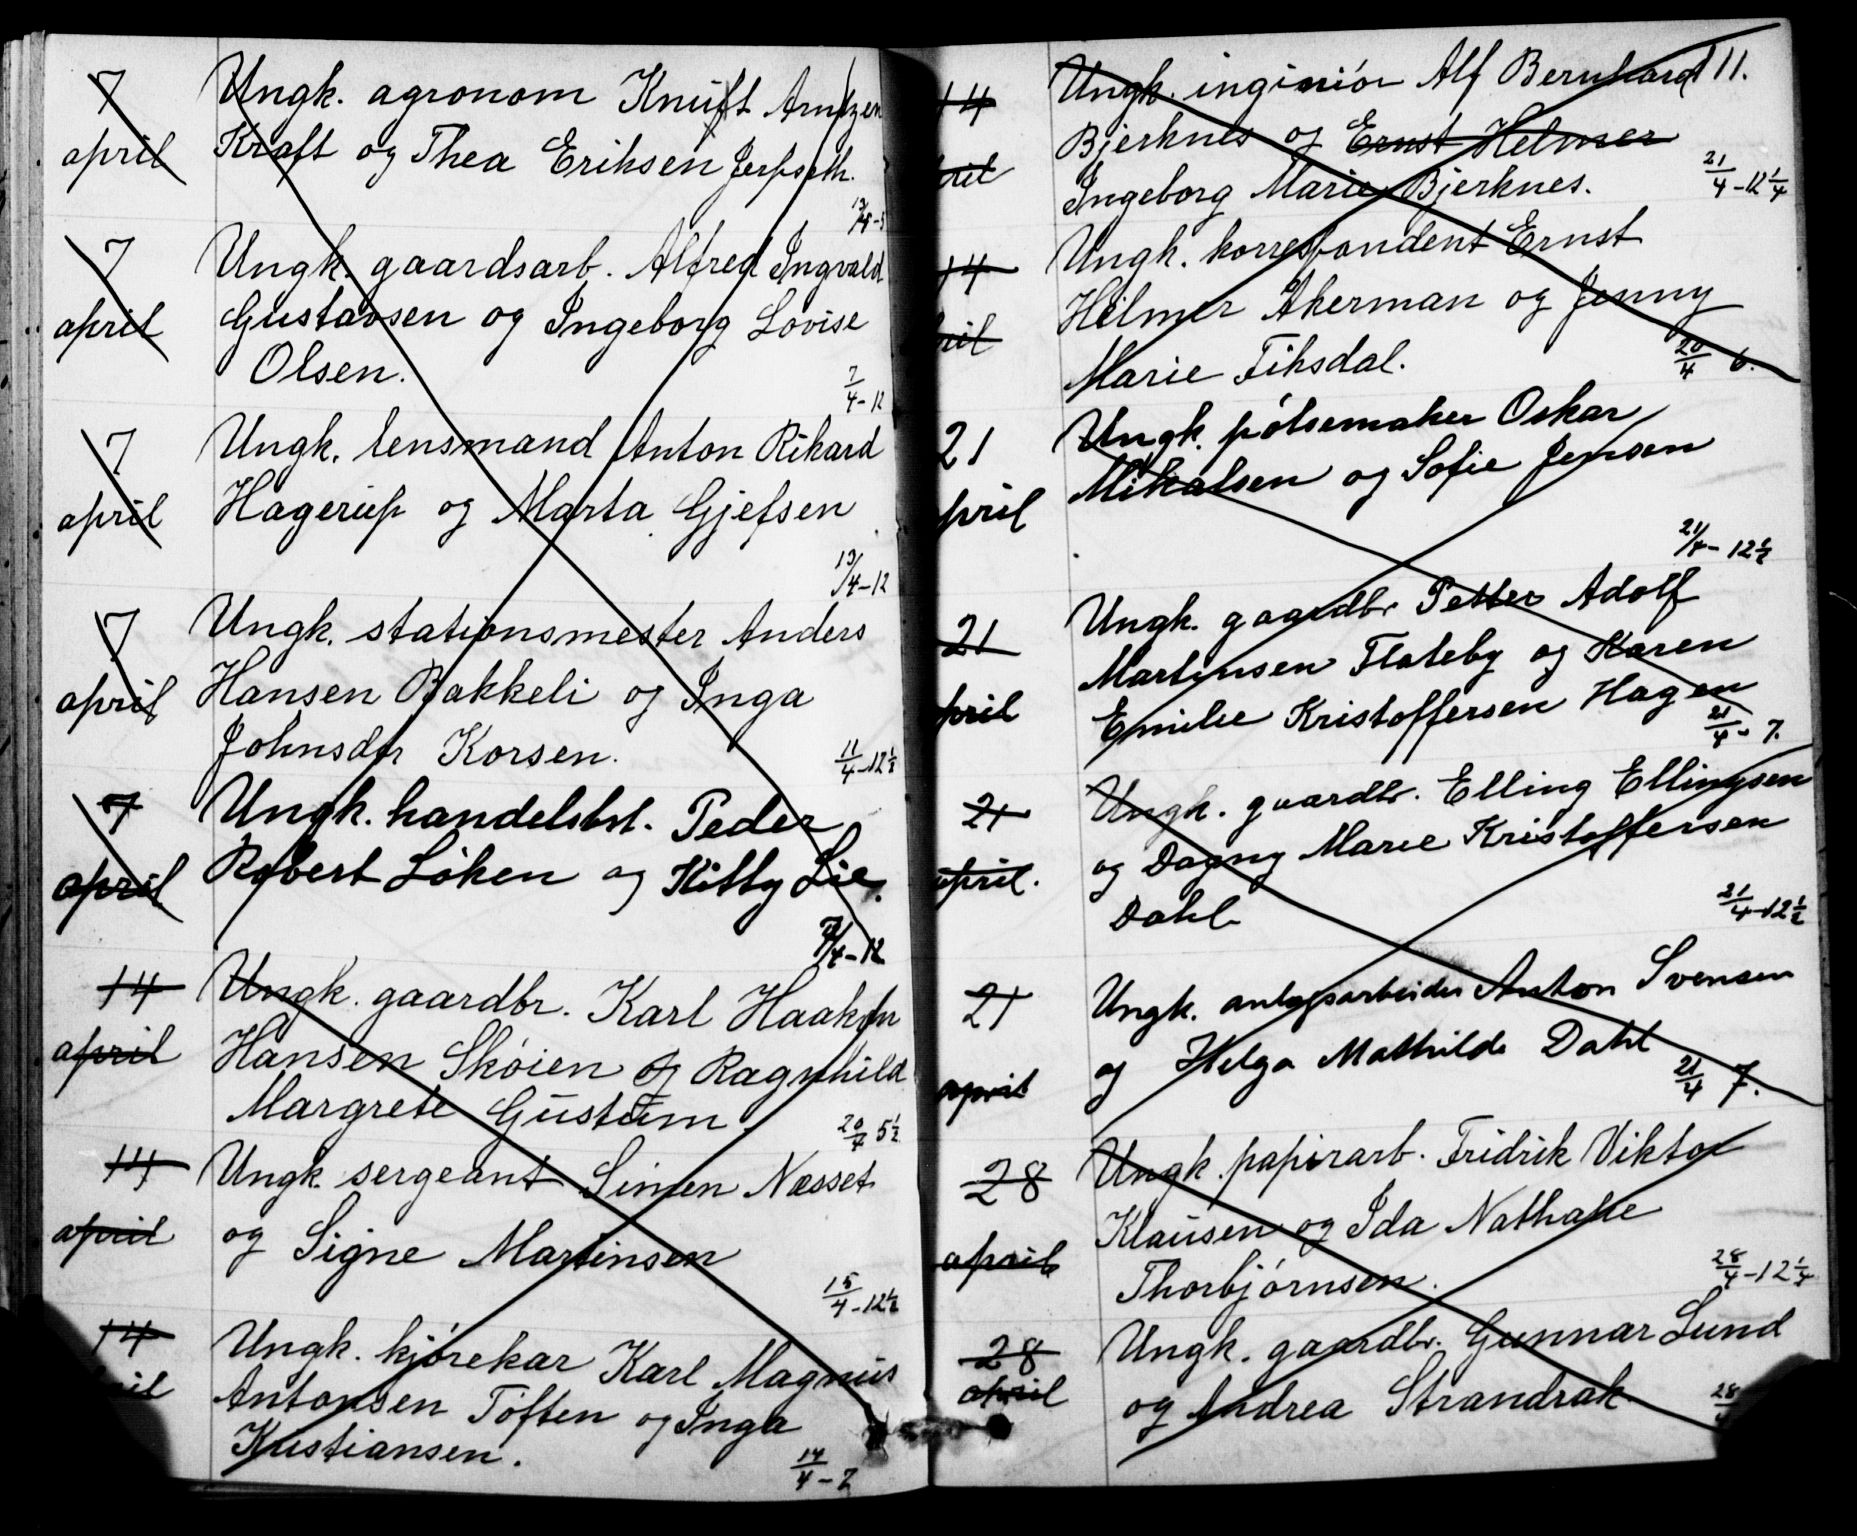 7 april Ungk. agronom Knut Arntzen
Kraft og Thea Eriksen
7 april Ungk. gaardsarb. Alfred Ingvald
Gustavsen og Ingeborg Lovise
Olsen.
7/4-12
7 april Ungk. lensmand Anton Rikard
Hagerup og Marta Gjefsen
13/4-12
7 april Ungk. stationsmester Anders
Hansen Bakkeli og Inga
Johnsdtr Korsen.
11/4-12 1/2
7 april Ungk. handelsbst. Peder
Robert Löken og Kitty Lie.
7/4-12
14 april Ungk. gaardbr. Karl Haakon
Hansen Skóien og Ragnhild
Margrete Gustum
20/4 5 1/2
14 april Ungk. sergeant Simen Næsset
og Signe Martinsen
15/4-12 1/2
14 Ungk. kjórekar Karl Magnus
Antonsen Tóften og Inga
Kristiansen.
14/4-7
11.
14 Ungk. inginiór Alf Bernhard
Bjerknes og Ernst Helmer
Ingeborg Marie Bjerknes.
21/4-12 1/4
14 Ungk. korrespondent Ernst
Helmer Akerman og Jenny
Marie Fiksdal.
20/4 6.
21 april Ungk. pólsemaker Oskar
Mikalsen og Sofie Jensen
21/4-12 1/2
21 april Ungk. gaardbr. Petter Adolf
Martinsen Flateby og Karen
Emilie Kristoffersen Hagen
21/4-7.
21 april. Ungk. gaardbr. Elling Ellingsen
og Dagny Marie Kristoffersen
Dahl
21/4-12 1/2
21 april Ungk. anlægsarbeider Anton Svensen
og Helga Mathilde Dahl
21/4 7.
28 april Ungk. papirarb. Fridrik Viktor
Klausen og Ida Nathalie
Thorbjórnsen.
28/4-12 1/4
28 april Ungk. gaardbr. Gunnar Lund
og Andrea Strandrak